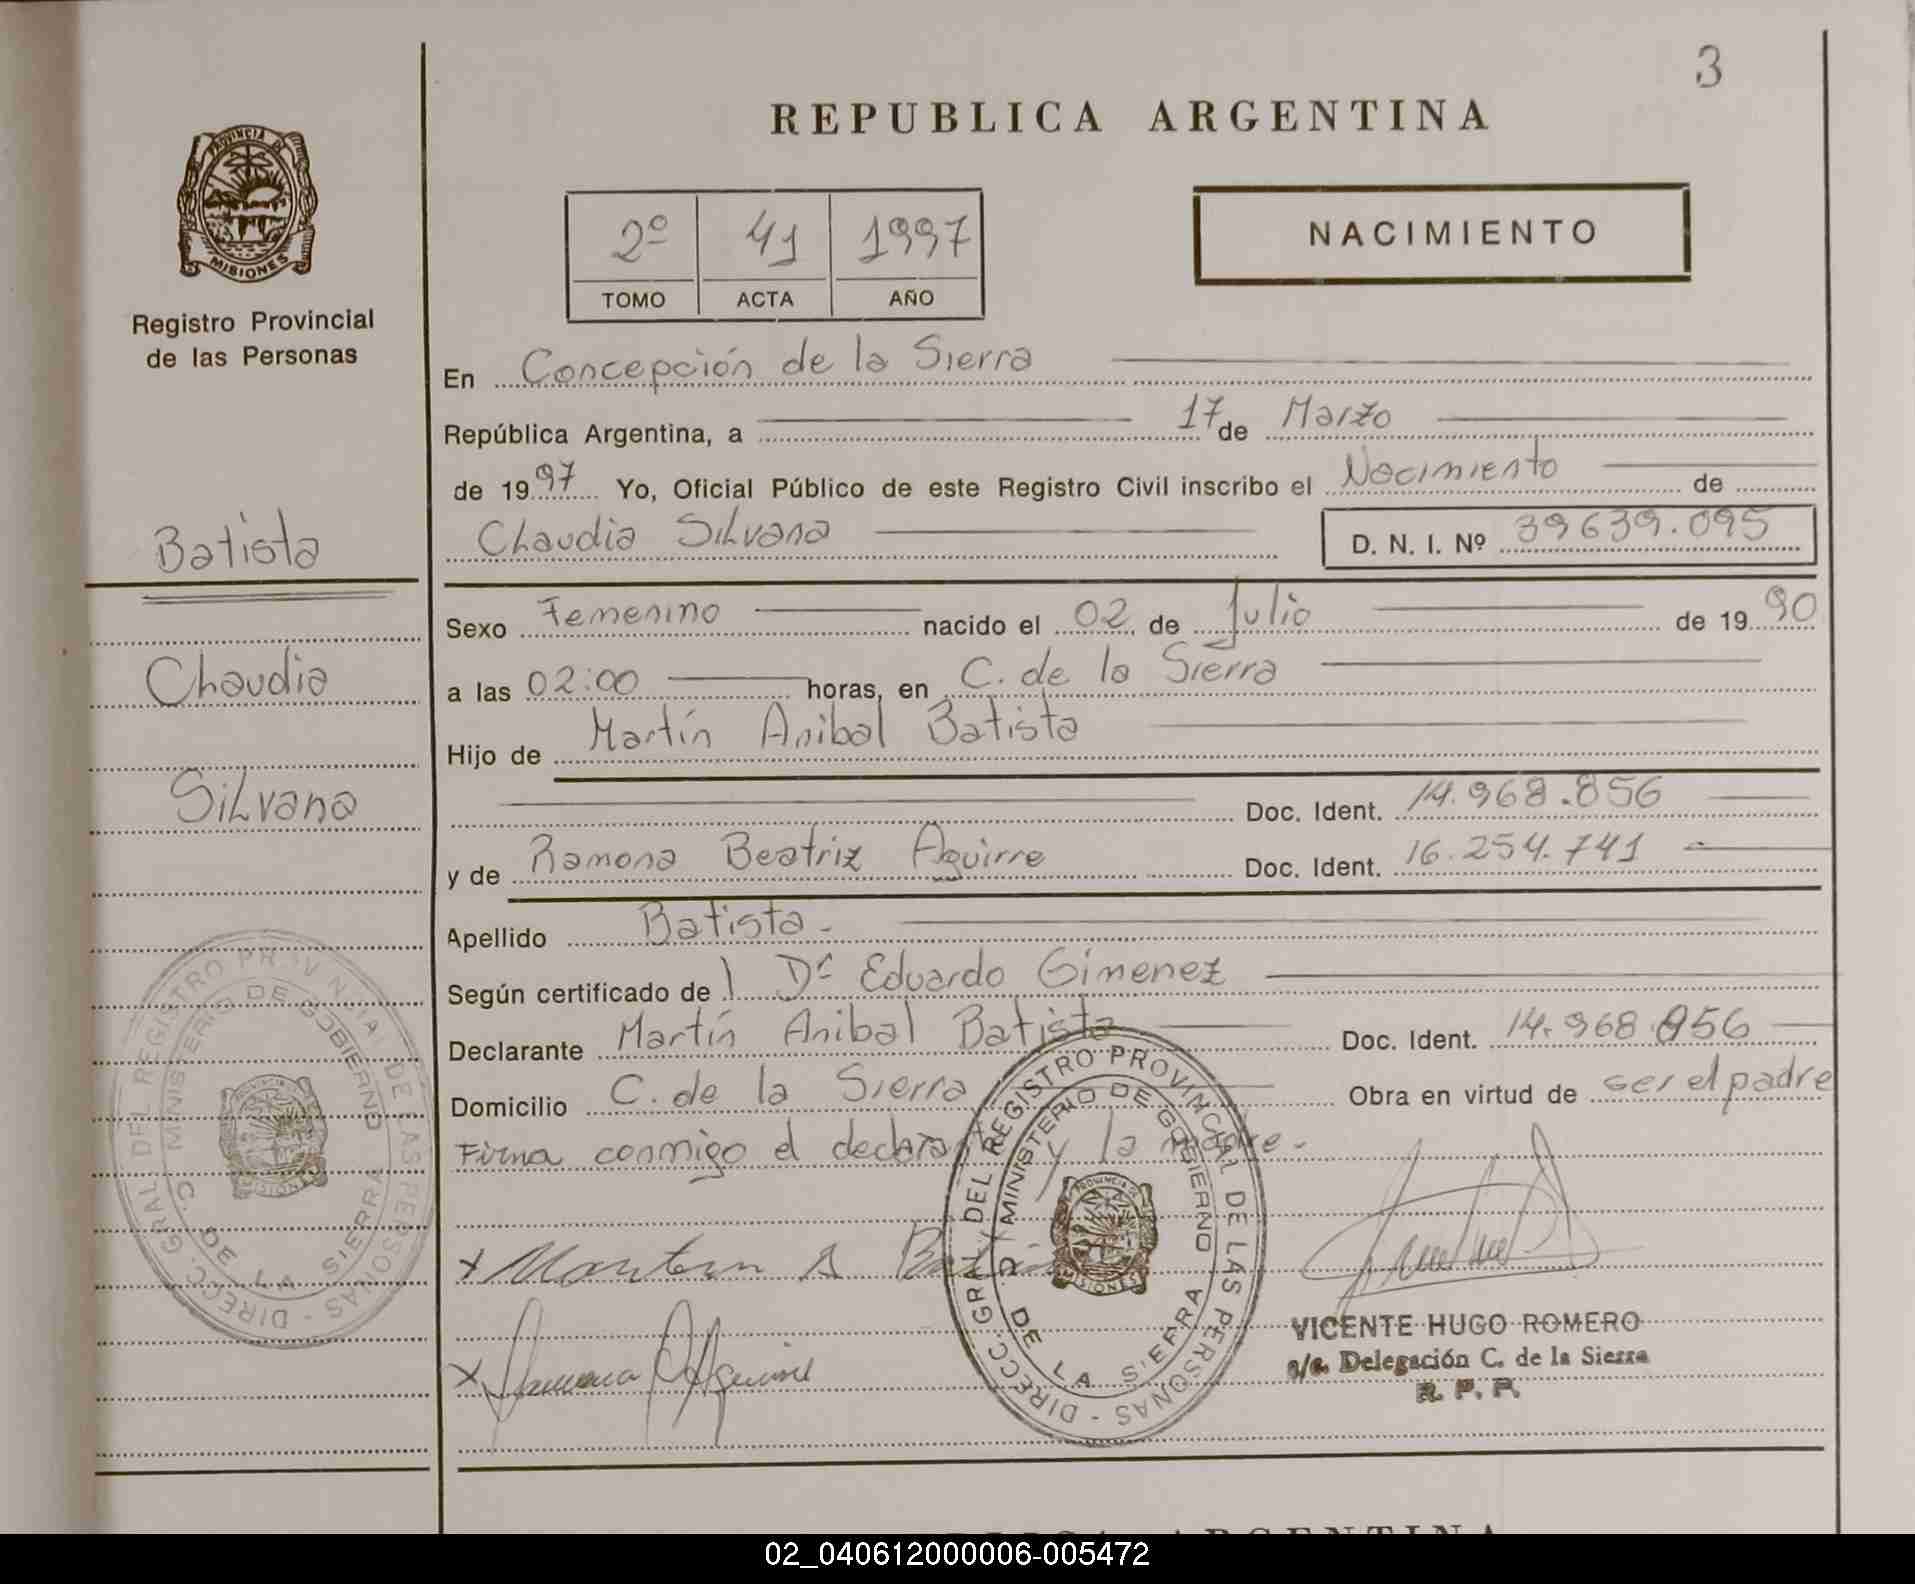 3
REPUBLICA ARGENTINA
PROVINCIA DE
MISIONES
Registro Provincial
de las Personas
2º 41 1997
TOMO ACTA AÑO
NACIMIENTO
En Concepción de la Sierra
República Argentina, a 17 de Marzo
de 1997 Yo, Oficial Público de este Registro Civil inscribo el Nacimiento de
Claudia Silvana D. N. I. Nº 39639.095
Batista
Claudia
Silvana
Sexo Femenino nacido el 02 de Julio de 1990
a las 02:00 horas, en C. de la Sierra
Hijo de Martín Anibal Batista
Doc. Ident. 14.968.856
y de Ramona Beatriz Aguirre Doc. Ident. 16.254.741
Apellido Batista.-
Según certificado de l Dr Eduardo Gimenez
Declarante Martín Anibal Batista Doc. Ident. 14.968.856
Domicilio C. de la Sierra Obra en virtud de ser el padre
Firma conmigo el declarante y la madre.-
x Martin A Batista
x Ramona Aguirre
DIRECC. GRAL DEL REGISTRO PROVINCIAL DE LAS PERSONAS
MINISTERIO DE GOBIERNO
C. DE LA SIERRA
MISIONES
DIRECC. GRAL DEL REGISTRO PROVINCIAL DE LAS PERSONAS
MINISTERIO DE GOBIERNO
DE LA SIERRA
PROVINCIA DE
MISIONES
VICENTE HUGO ROMERO
a/c. Delegación C. de la Sierra
R. P. P.
ARGENTINA
02_040612000006-005472